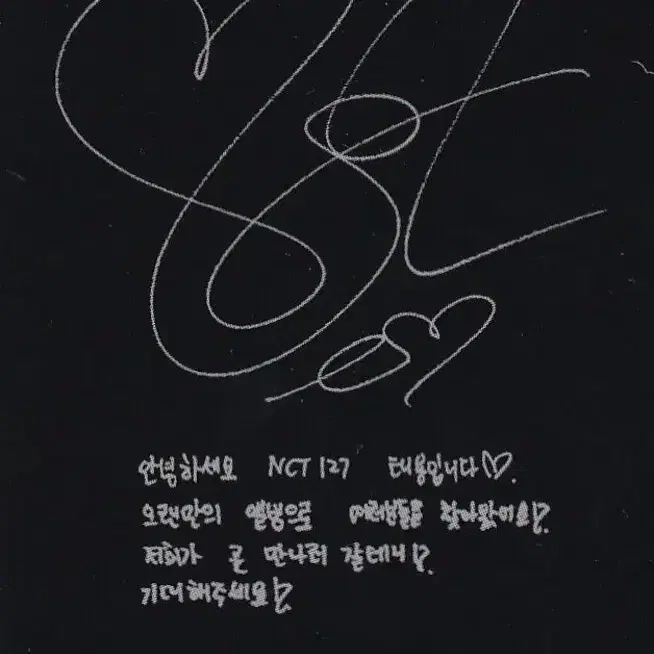 안녕하세요 NCT 127 태용입니다♡.
오랜만의 앨범으로 여러분들을 찾아왔어요!?
저희가 곧 만나러 갈테니!?
기대해주세요!?